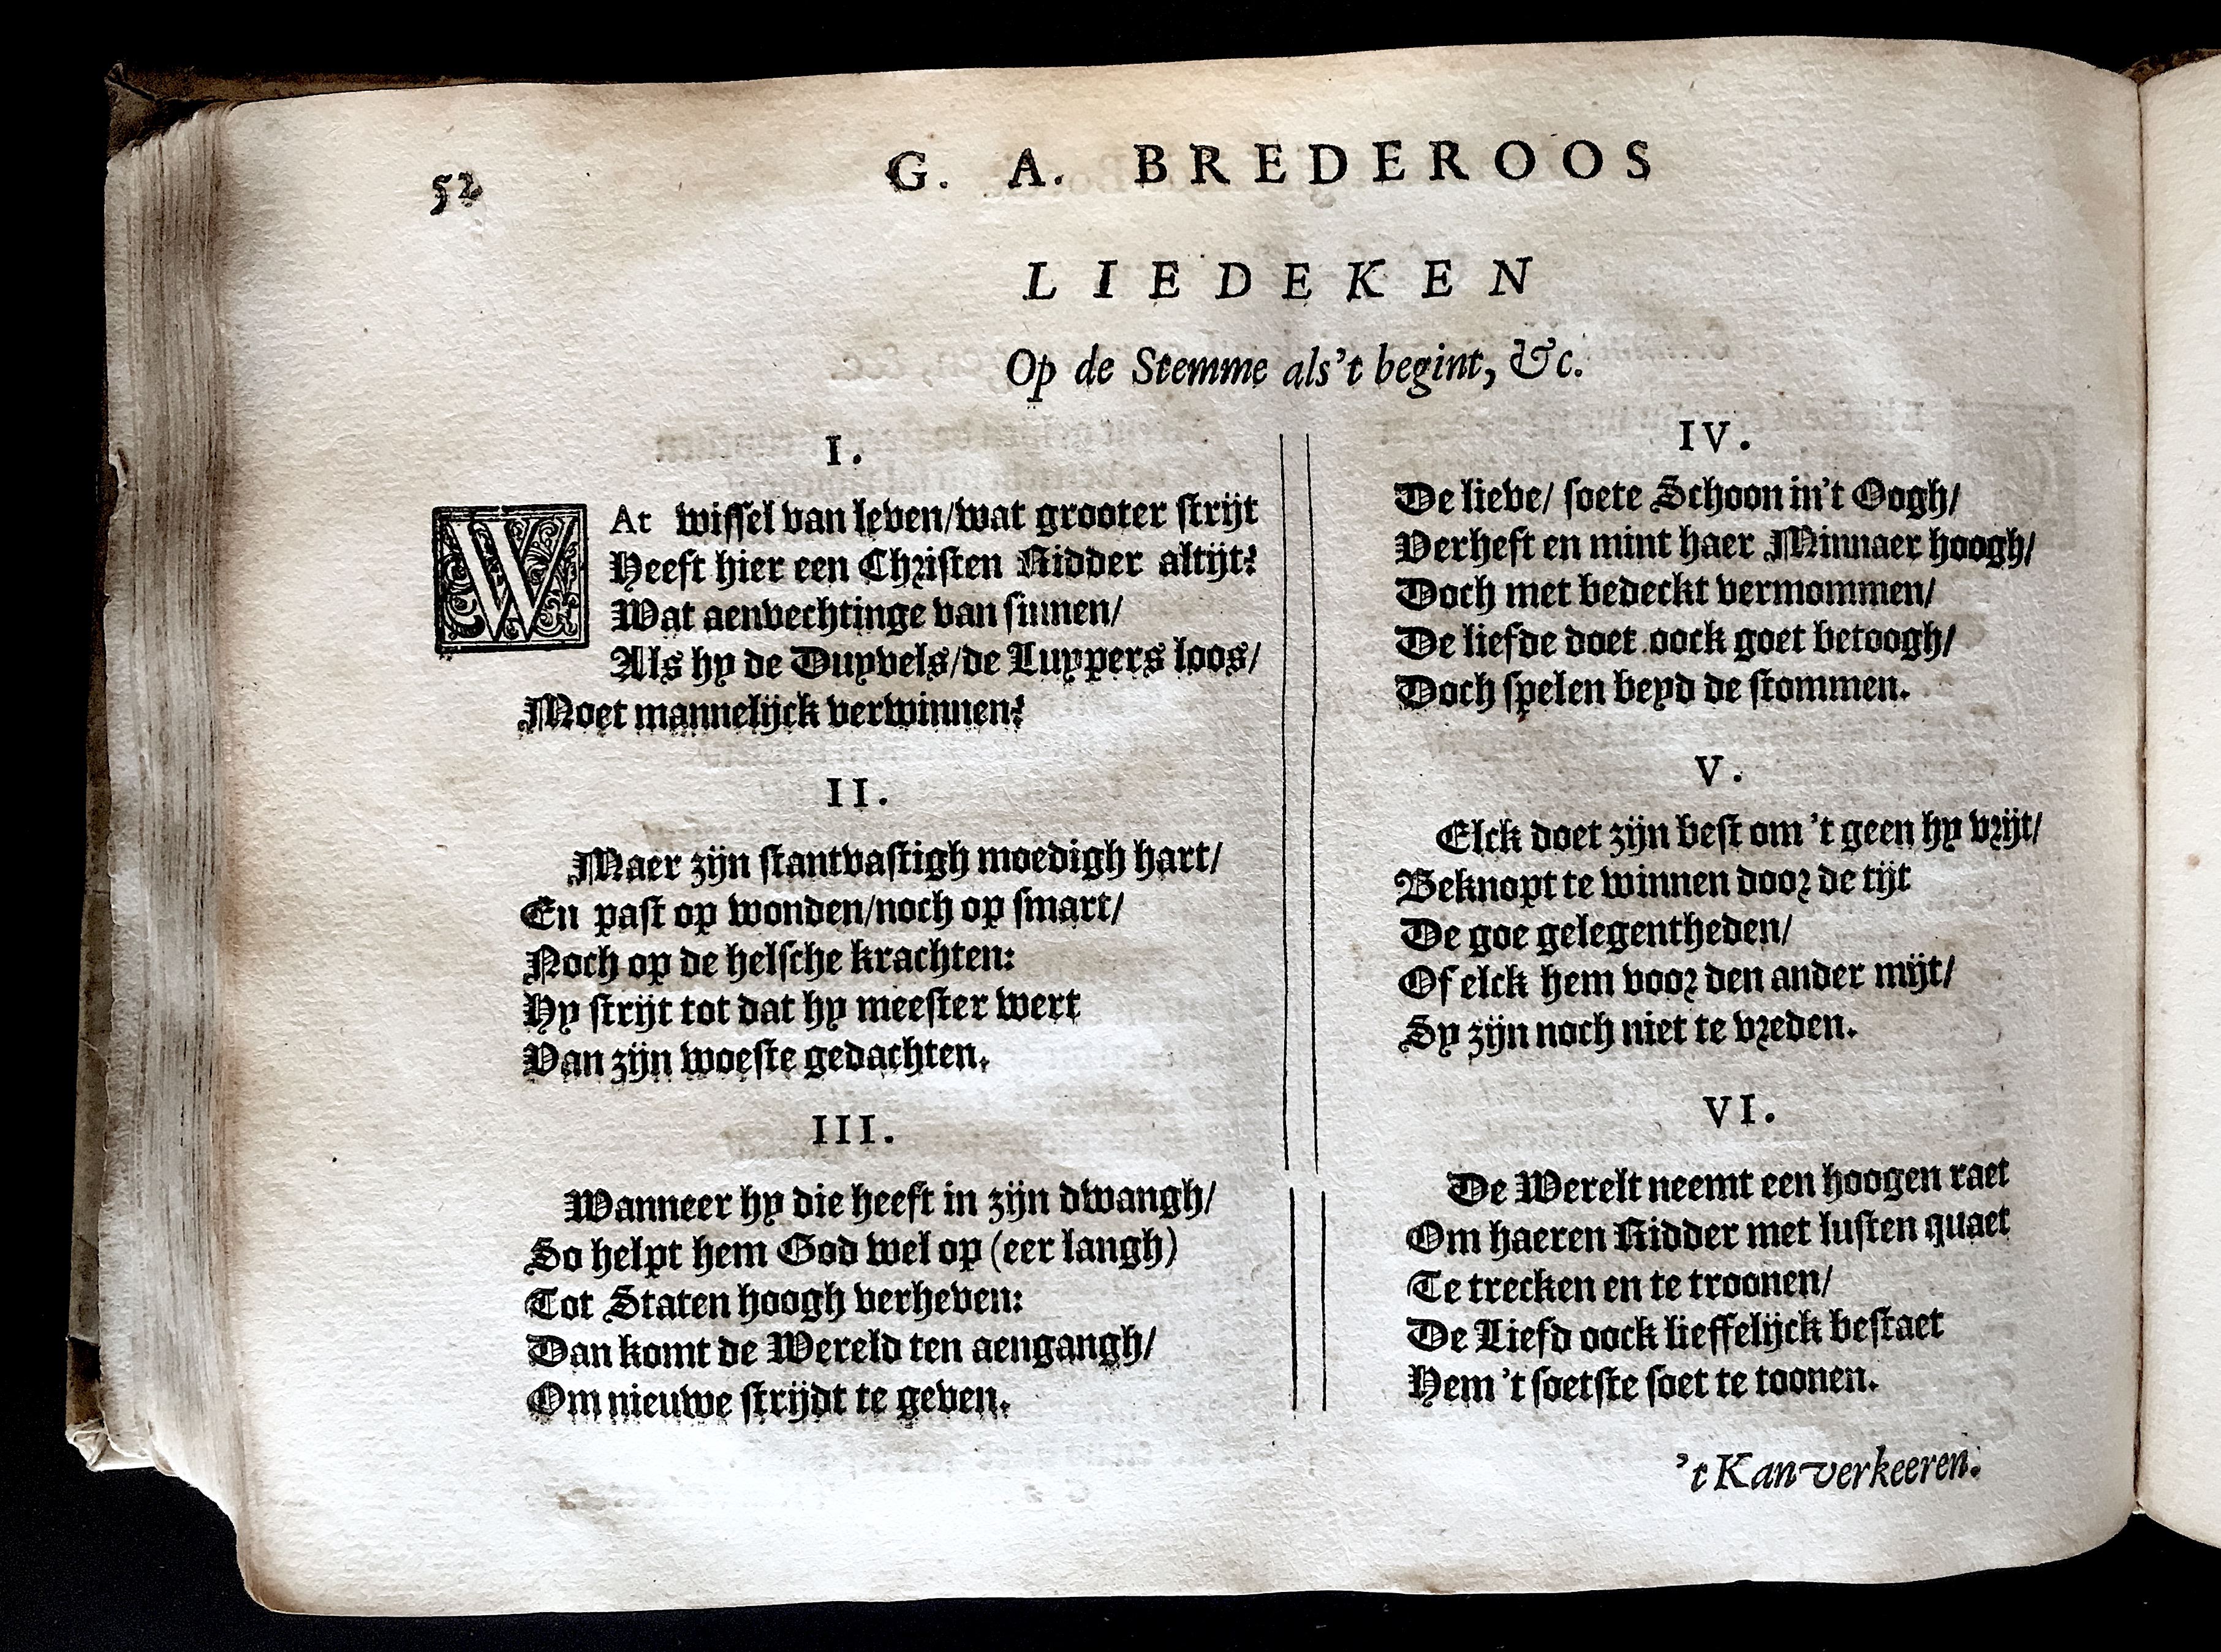 52
G. A. BREDEROOS
LIEDEKEN
Op de Stemme als't begint, &c.
I.
WAt wissel van leven/wat grooter strijt
Heeft hier een Christen Ridder altijt?
Wat aenvechtinge van sinnen/
Als hy de Duyvels/de Luypers loos/
Moet mannelijck verwinnen?
II.
Maer zijn stantvastigh moedigh hart/
En past op wonden/noch op smart/
Noch op de helsche krachten:
Hy strijt tot dat hy meester wert
Van zijn woeste gedachten.
III.
Wanneer hy die heeft in zijn dwangh/
So helpt hem God wel op (eer langh)
Tot Staten hoogh verheven:
Dan komt de Wereld ten aengangh/
Om nieuwe strijdt te geven.
IV.
De lieve/ soete Schoon in't Oogh/
Verheft en mint haer Minnaer hoogh/
Doch met bedeckt vermommen/
De liefde doet oock goet betoogh/
Doch spelen beyd de stommen.
V.
Elck doet zijn best om 't geen hy vrijt/
Beknopt te winnen door de tijt
De goe gelegentheden/
Of elck hem voor den ander mijt/
Sy zijn noch niet te vreden.
VI.
De Werelt neemt een hoogen raet
Om haeren Ridder met lusten quaet
Te trecken en te troonen/
De Liefd oock lieffelijck bestaet
Hem 't soetste soet te toonen.
't Kan verkeeren.